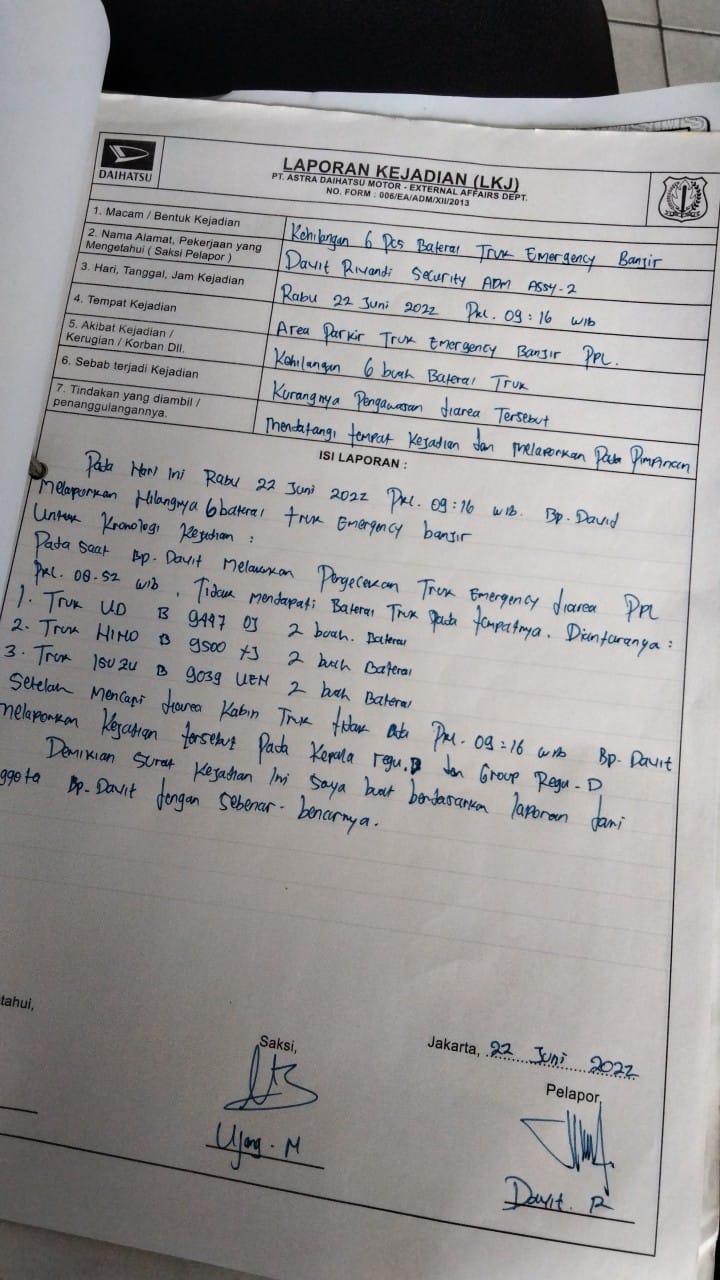 DAIHATSU
LAPORAN KEJADIAN (LKJ)
PT. ASTRA DAIHATSU MOTOR - EXTERNAL AFFAIRS DEPT.
NO. FORM : 006/EA/ADM/XII/2013
1. Macam / Bentuk Kejadian
Kehilangan 6 Pcs Baterai Truk Emergency Banjir
2. Nama Alamat, Pekerjaan yang
Mengetahui ( Saksi Pelapor )
Davit Rivandi Security ADM Assy-2
3. Hari, Tanggal, Jam Kejadian
Rabu 22 Juni 2022 Pkl. 09:16 WIB
4. Tempat Kejadian
Area Parkir Truk Emergency Banjir PPL.
5. Akibat Kejadian /
Kerugian / Korban Dll.
Kehilangan 6 buah Baterai Truk
6. Sebab terjadi Kejadian
Kurangnya Pengawasan diarea Tersebut
7. Tindakan yang diambil /
penanggulangannya.
Mendatangi tempat Kejadian dan Melaporkan Pada Pimpinan
ISI LAPORAN :
Pada Hari Ini Rabu 22 Juni 2022 Pkl. 09:16 WIB. Bp. David
Melaporkan Hilangnya 6 baterai truk Emergency banjir
Untuk Kronologi Kejadian :
Pada saat Bp. Davit Melakukan Pengecekan Truk Emergency diarea PPL
Pkl. 08.52 WIB, Tidak Mendapati Baterai Truk Pada tempatnya. Diantaranya :
1. Truk UD B 9447 OJ 2 buah. Baterai
2. Truk HINO B 9500 2 buah Baterai
3. Truk ISUZU B 9039 UEN 2 buah Baterai
Setelah Mencari diarea Kabin Truk tidak ada Pkl. 09:16 WIB Bp. Davit
Melaporkan Kejadian tersebut Pada Kepala regu. D dan Group Regu - D
Demikian Surat Kejadian Ini Saya buat berdasarkan laporan dari
ggota Bp. Davit dengan Sebenar - benarnya.
tahui,
Saksi,
Ujang. M
Jakarta, 22 Juni 2022
Pelapor,
Davit. R